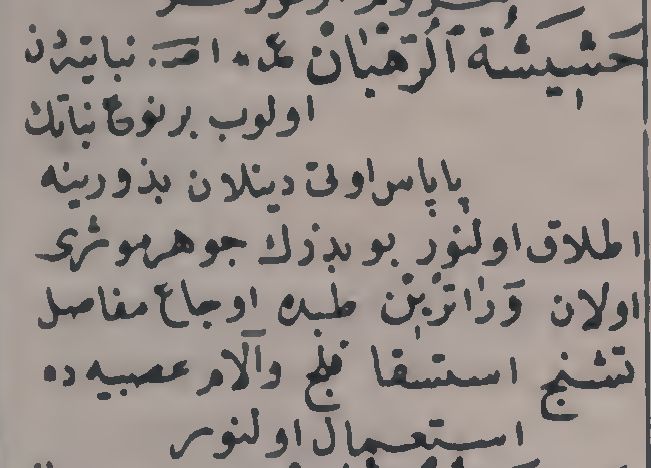 حَشِيشَةُ اَلرُّهْبَانْ عَلَّهٔ نباتيه‌دن
اولوب بر نوع نباتك
پاپاس اوتى دينلان بذورينه
اطلاق اولنور بو بذرك جوهر موثرى
اولان وَرَاتْرِينْ طبده اوجاع مفاصل
تشنج استسقا فلج وآلام عصبيه ده
استعمال اولنور